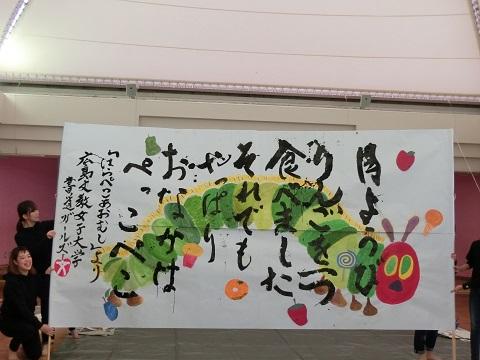 月ようび
りんごを一つ
食べました
それでも
やっぱり
おなかは
ぺっこぺこ
「はらぺこあおむし」より
奈良文教女子大学
書道ガールズ
文